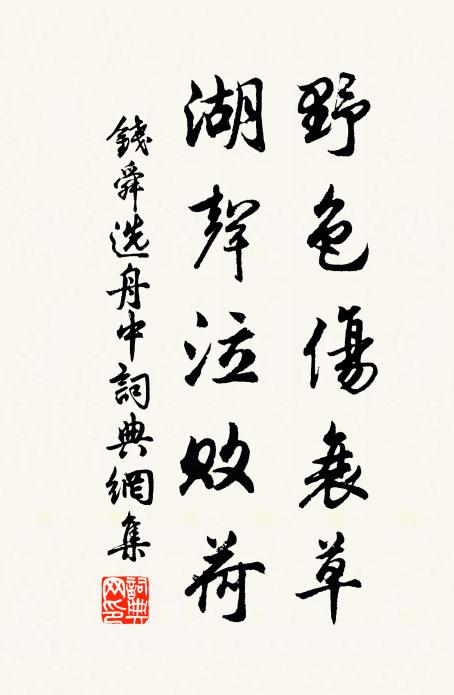 野色傷衰草
湖聲泣敗荷
錢舜选舟中詞典網集
詞典网印